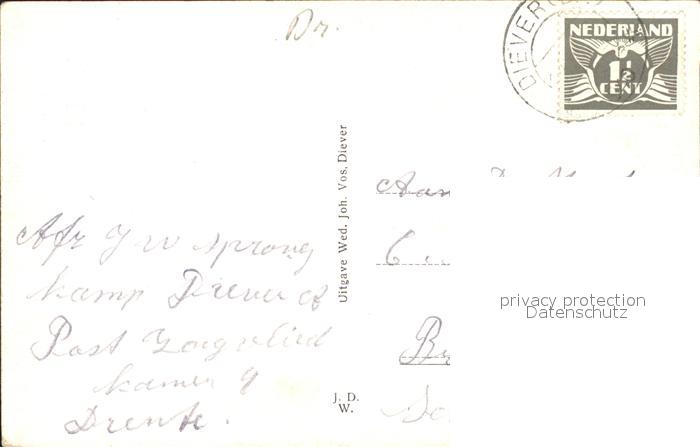 Dr.
DIEVER
NEDERLAND
1½
CENT
Uitgave Wed. Joh. Vos, Diever
J. D.
W.
Afz J W Sprong
Kamp Diever
Post Zorgvlied
Kamer 9
Drente.
Aan
privacy protection
Datenschutz